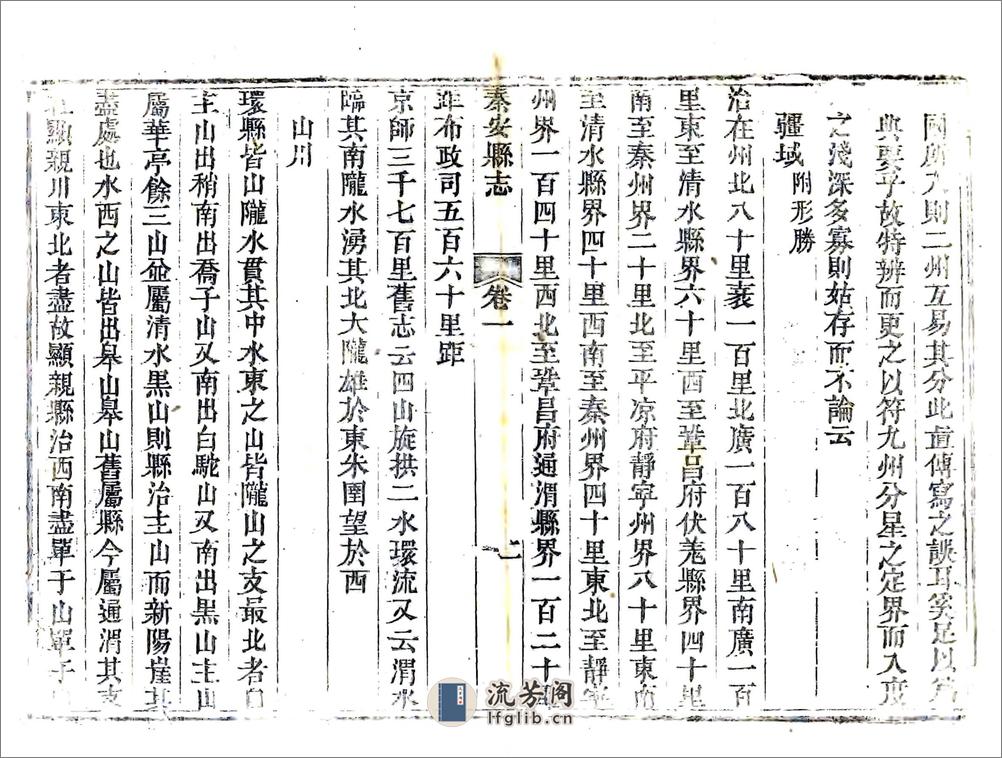 國所入則二州互易其分此直傳寫之誤耳奚足以為
典要乎故特辨而更之以符九州分星之定界而入度
之淺深多寡則姑存而不論云
疆域 附形勝
治在州北八十里袤一百里北廣一百八十里南廣一百
里東至清水縣界六十里西至鞏昌府伏羌縣界四十里
南至秦州界二十里北至平凉府靜寧州界八十里東南
至清水縣界四十里西南至秦州界四十里東北至靜寧
州界一百四十里西北至鞏昌府通渭縣界一百二十里
秦安縣志 卷一 二
距布政司五百六十里距
京師三千七百里舊志云四山旋拱二水環流又云渭水
臨其南隴水湧其北大隴雄於東朱圉望於西
山川
環縣皆山隴水貫其中水東之山皆隴山之支最北者自
主山出稍南出喬子山又南出白駝山又南出黑山主山
屬華亭餘三山並屬清水黑山則縣治主山而新陽崖其
盡處也水西之山皆出皋山皋山舊屬縣今屬通渭其支
顯親川東北者盡故顯親縣治西南盡單于山單于
流芳阁
lfglib.cn